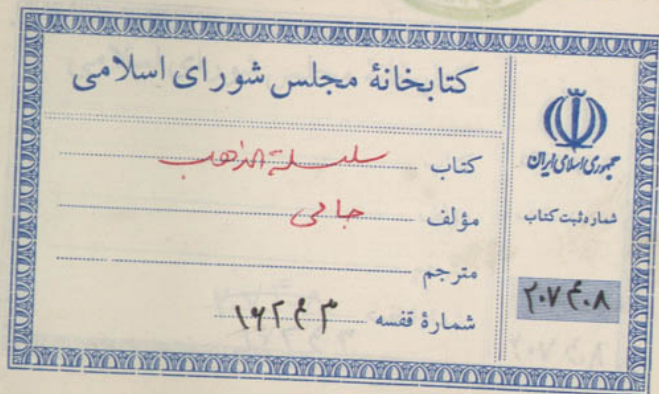 کتابخانهٔ مجلس شورای اسلامی
جمهوری اسلامی ایران
شماره ثبت کتاب
۲۰۷۴۰۸
کتاب سلسلة الذهب
مؤلف جامی
مترجم
شمارهٔ قفسه ۱۶۲۴۳